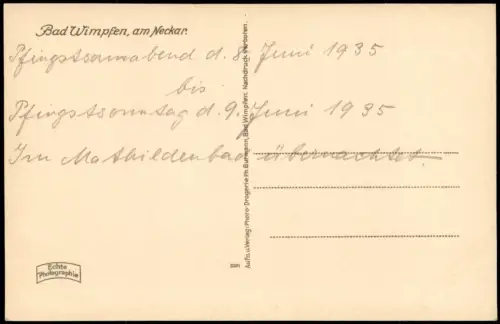 Bad Wimpfen, am Neckar.
Pfingstsonnabend d. 8. Juni 1935
bis
Pfingstsonntag d. 9. Juni 1935
Im Mathildenbad übernachtet.
Echte
Photographie
Aufn. u. Verlag: Photo-Drogerie Bad Wimpfen. Nachdruck verboten.